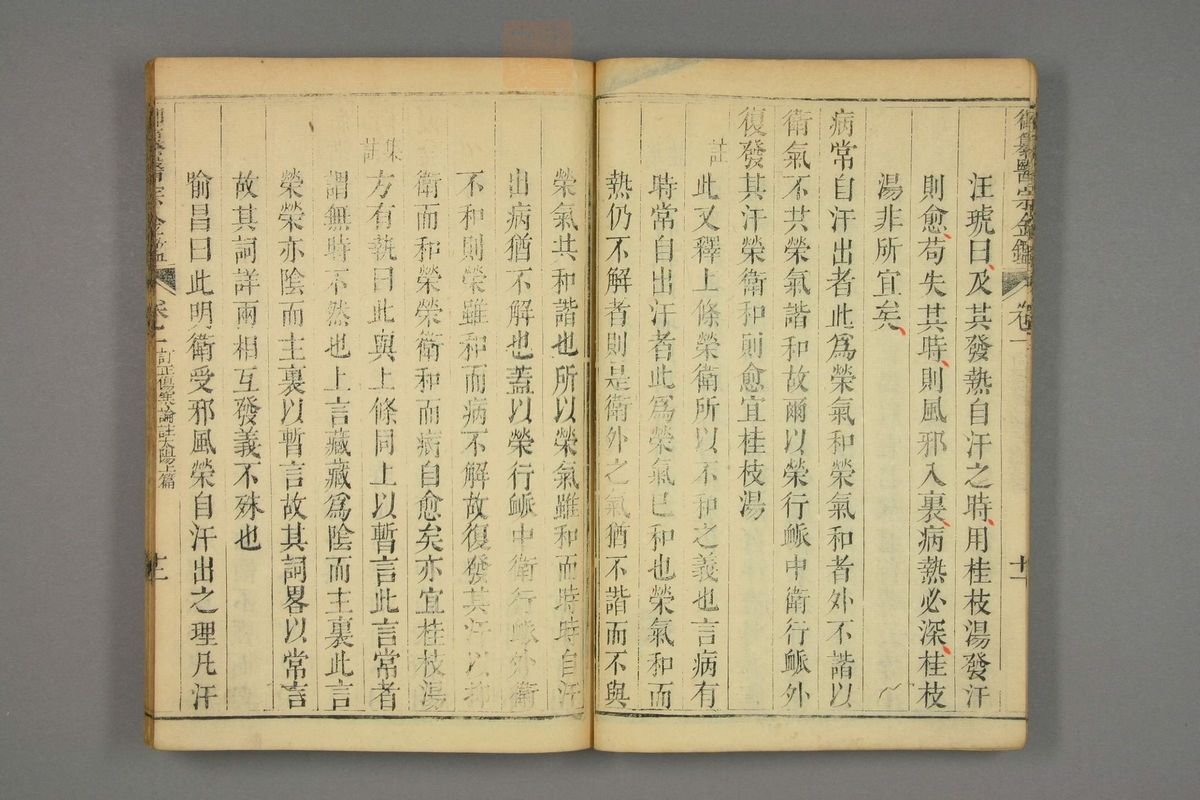 御纂醫宗金鑑
卷一
十一
汪琥曰及其發熱自汗之時用桂枝湯發汗
則愈苟失其時則風邪入裏病熱必深桂枝
湯非所宜矣
病常自汗出者此爲榮氣和榮氣和者外不諧以
衛氣不共榮氣諧和故爾以榮行衇中衛行衇外
復發其汗榮衛和則愈宜桂枝湯
註
此又釋上條榮衛所以不和之義也言病有
時常自出汗者此爲榮氣已和也榮氣和而
熱仍不解者則是衛外之氣猶不諧而不與
榮氣共和諧也所以榮氣雖和而時時自汗
出病猶不解也蓋以榮行衇中衛行衇外衛
不和則榮雖和而病不解故復發其汗以和
衛而和榮榮衛和而病自愈矣亦宜桂枝湯
集註
方有執曰此與上條同上以暫言此言常者
謂無時不然也上言藏藏爲陰而主裏此言
榮榮亦陰而主裏以暫言故其詞畧以常言
故其詞詳兩相互發義不殊也
喻昌曰此明衛受邪風榮自汗出之理凡汗
卷一
訂正傷寒論註太陽上篇